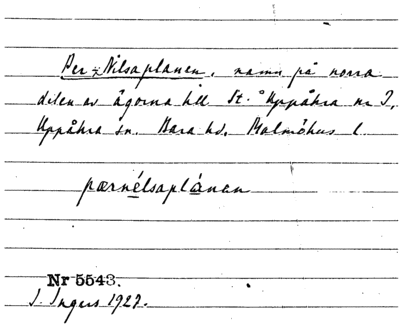 Per-Nilsaplanen, namn på norra
delen av ägorna till St. Uppåkra nr 7,
Uppåkra sn. Bara hd. Malmöhus l.
pærnélsaplánan
Nr 5543.
I. Ingers 1927.